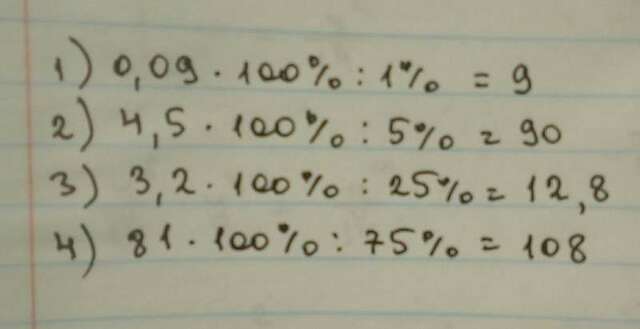 1) 0,09 · 100% : 1% = 9
2) 4,5 · 100% : 5% = 90
3) 3,2 · 100% : 25% = 12,8
4) 81 · 100% : 75% = 108